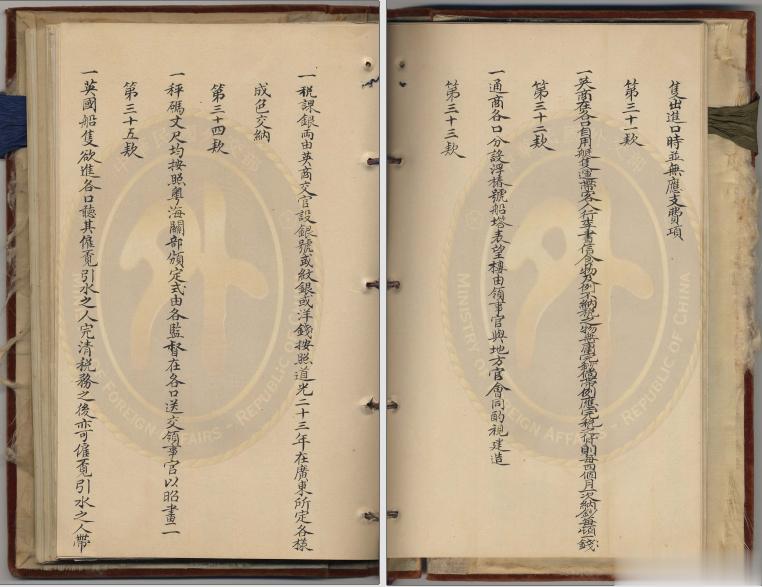 隻出進口時並無應支費項
第三十一款
一英商在各口自用艇隻運帶客人行李書信食物及例不納稅之物無庸完鈔倘帶例應完稅之貨則每四個月一次納鈔每噸一錢
第三十二款
一通商各口分設浮樁號船塔表望樓由領事官與地方官會同酌視建造
第三十三款
一稅課銀兩由英商交官設銀號或紋銀或洋錢按照道光二十三年在廣東所定各樣
成色交納
第三十四款
一秤碼丈尺均按照粵海關部頒定式由各監督在各口送交領事官以昭畫一
第三十五款
一英國船隻欲進各口聽其僱覓引水之人完清稅務之後亦可僱覓引水之人帶
MINISTRY OF FOREIGN AFFAIRS · REPUBLIC OF CHINA
OF FOREIGN AFFAIRS · REPUBLIC OF